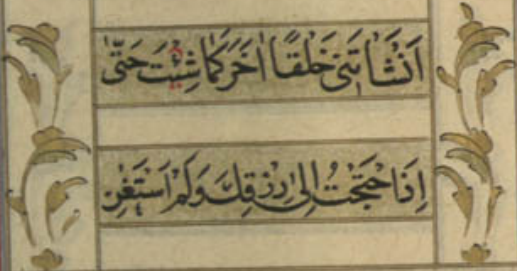 اَنْشَاْتَنٖى خَلْقًا اٰخَرَ كَمَا شِئْتَ حَتّٰى
اِذَا احْتَجْتُ اِلٰى رِزْقِكَ وَلَمْ اَسْتَغْنِ